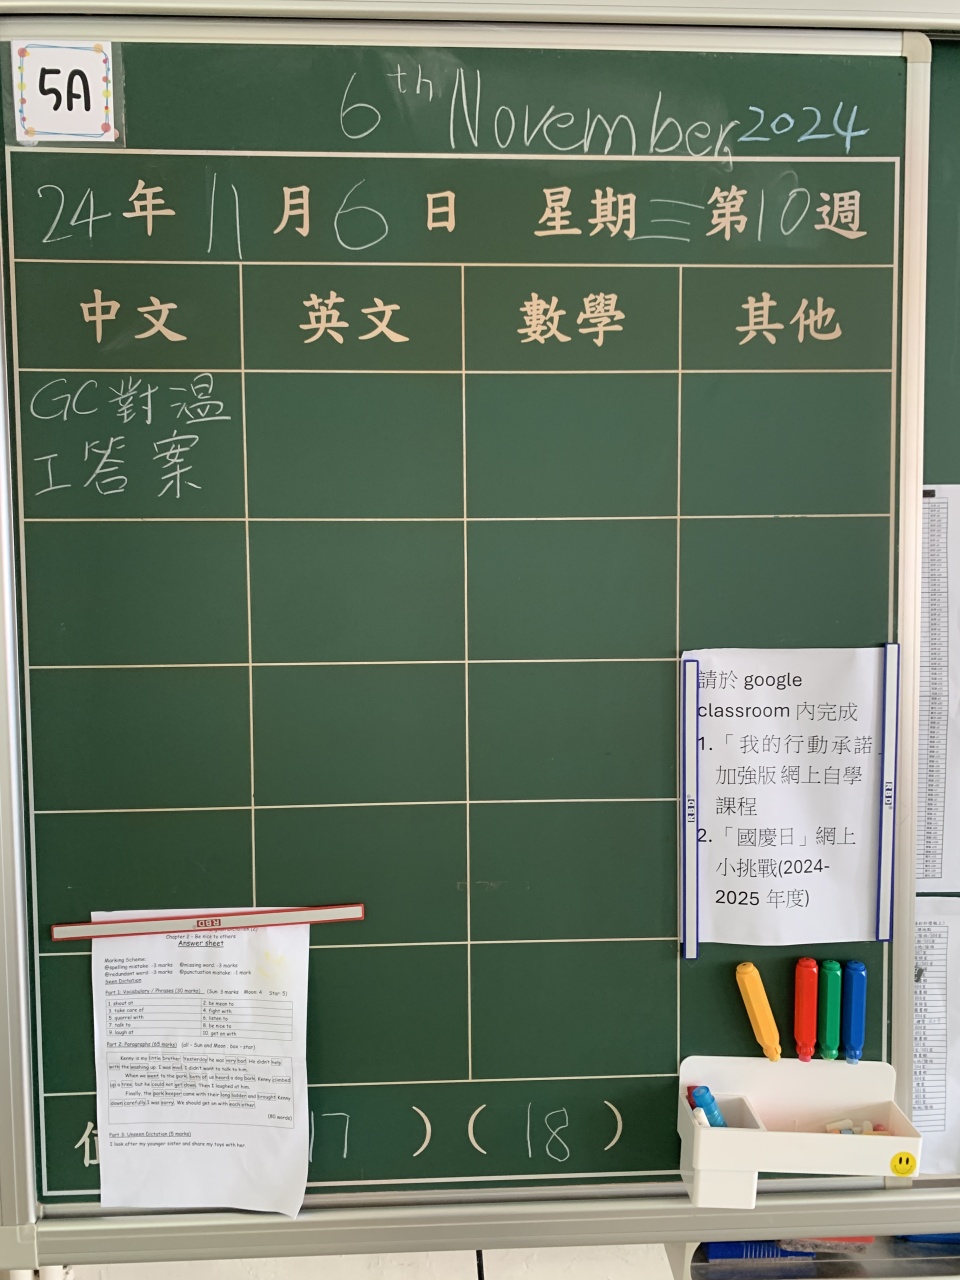 5A
6th November, 2024
24年11月6日 星期三第10週
中文 英文 數學 其他
GC對溫
工答案
請於 google
classroom 內完成
1.「我的行動承諾」
加強版網上自學
課程
2.「國慶日」網上
小挑戰(2024-
2025 年度)
RBD
Chapter 2 - Be nice to others
Answer sheet
Marking Scheme:
@spelling mistake: -3 marks @missing word: -3 marks
@redundant word: -3 marks @punctuation mistake: 1 mark
Seen Dictation
Part 1: Vocabulary / Phrases (30 marks) (Sun: 3 marks Moon: 4 Star: 5)
1. shout at 2. be mean to
3. take care of 4. fight with
5. quarrel with 6. listen to
7. talk to 8. be nice to
9. laugh at 10. get on with
Part 2: Paragraphs (65 marks) (all - Sun and Moon : box - star)
Kenny is my little brother. Yesterday he was very bad. He didn't help
with the washing up. I was mad. I didn't want to talk to him.
When we went to the park, both of us heard a dog bark. Kenny climbed
up a tree, but he could not get down. Then I laughed at him.
Finally, the park keeper came with their long ladder and brought Kenny
down carefully. I was sorry. We should get on with each other.
(80 words)
Part 3: Unseen Dictation (5 marks)
I look after my younger sister and share my toys with her.
17 ) ( 18 )